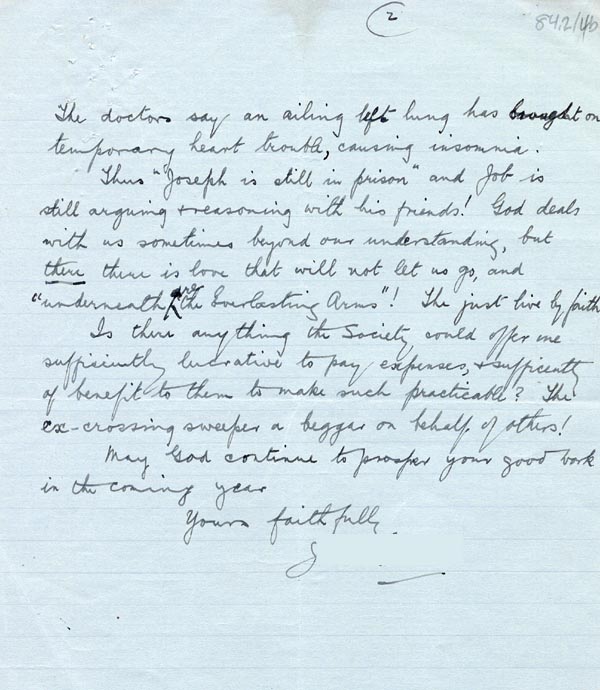 2
84.2/46
The doctors say an ailing left lung has brought on
temporary heart trouble, causing insomnia.
Thus "Joseph is still in prison" and Job is
still arguing + reasoning with his friends! God deals
with us sometimes beyond our understanding, but
there there is love that will not let us go, and
"underneath are the Everlasting Arms"! The just live by faith
Is there anything the Society could offer me
sufficiently lucrative to pay expenses, + sufficently
of benefit to them to make such practicable? The
ex-crossing sweeper a beggar on behalf of others!
May God continue to prosper your good work
in the coming year
Yours faithfully